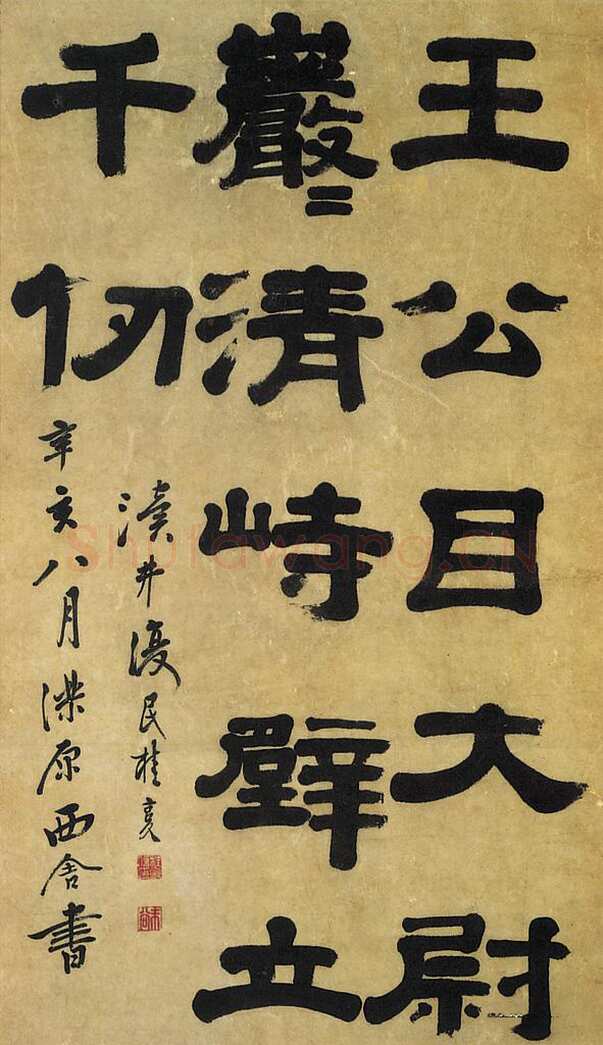 王公目大尉
巖〻清峙壁立
千仞
瀆井復民桂馥
辛亥八月濼原西舍書
Shufawang.CN